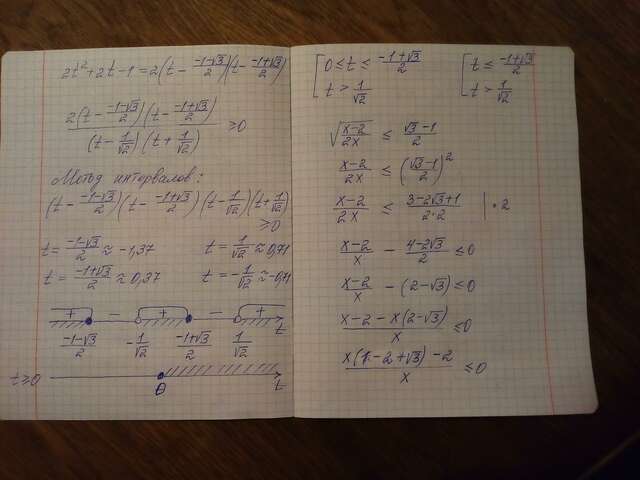 2t² + 2t - 1 = 2(t - (-1-√3)/2)(t - (-1+√3)/2)
2(t - (-1-√3)/2)(t - (-1+√3)/2) / ((t - 1/√2)(t + 1/√2)) ≥ 0
Метод интервалов:
(t - (-1-√3)/2)(t - (-1+√3)/2)(t - 1/√2)(t + 1/√2)
≥ 0
t = (-1-√3)/2 ≈ -1,37 t = 1/√2 ≈ 0,71
t = (-1+√3)/2 ≈ 0,37 t = -1/√2 ≈ -0,71
+ - + - + t
(-1-√3)/2 -1/√2 (-1+√3)/2 1/√2
t ≥ 0 0 t
[ 0 ≤ t ≤ (-1+√3)/2 [ t ≤ (-1+√3)/2
t > 1/√2 t > 1/√2
√((x-2)/(2x)) ≤ (√3-1)/2
(x-2)/(2x) ≤ ((√3-1)/2)²
(x-2)/(2x) ≤ (3-2√3+1)/(2·2) | · 2
(x-2)/x - (4-2√3)/2 ≤ 0
(x-2)/x - (2-√3) ≤ 0
(x-2-x(2-√3))/x ≤ 0
(x(1-2+√3)-2)/x ≤ 0